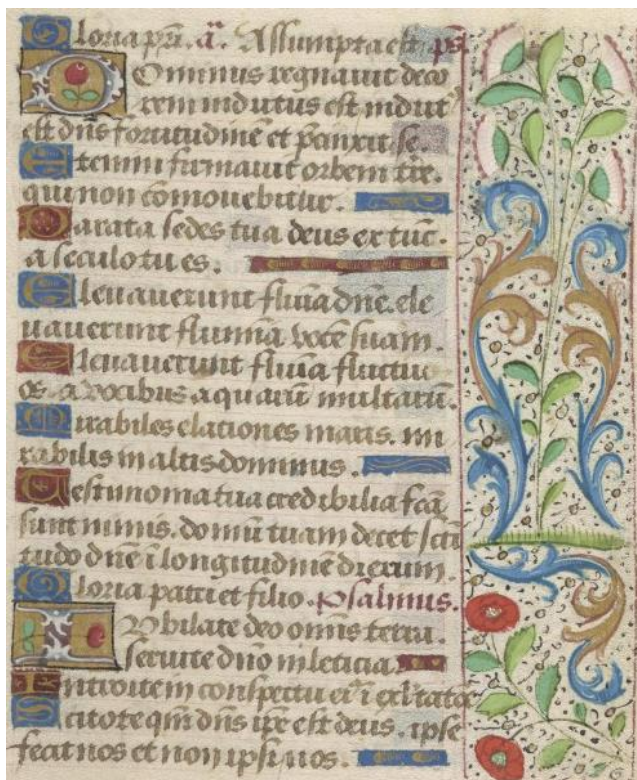 Gloria pr̄i. ā. Assumpta est. p̄s.
Ominus regnauit deco
rem indutus est indut'
est dn̄s fortitudinē et p̄cinxit se.
Etenim firmauit orbem tr̄e.
qui non cōmouebitur.
Parata sedes tua deus ex tūc.
a seculo tu es.
Eleuauerunt flūia dn̄e. ele
uauerunt flumīa vocē suam.
Eleuauerunt flūia fluctuc
os. a vocibus aquarū multarū.
Mirabiles elationes maris. mi
rabilis in altis dominus.
Testimonia tua credibilia fcā
sunt nimis. domū tuam decet sctī
tudo dn̄e ī longitudinē dierum.
Gloria patri et filio. psalmus.
Iubilate deo omīs terra.
seruite dn̄o in leticia.
Introite in conspectu eiꝰ ī exltatōe
Scitote qm̄ dn̄s ip̄e est deus. ipse
fecit nos et non ipsi nos.